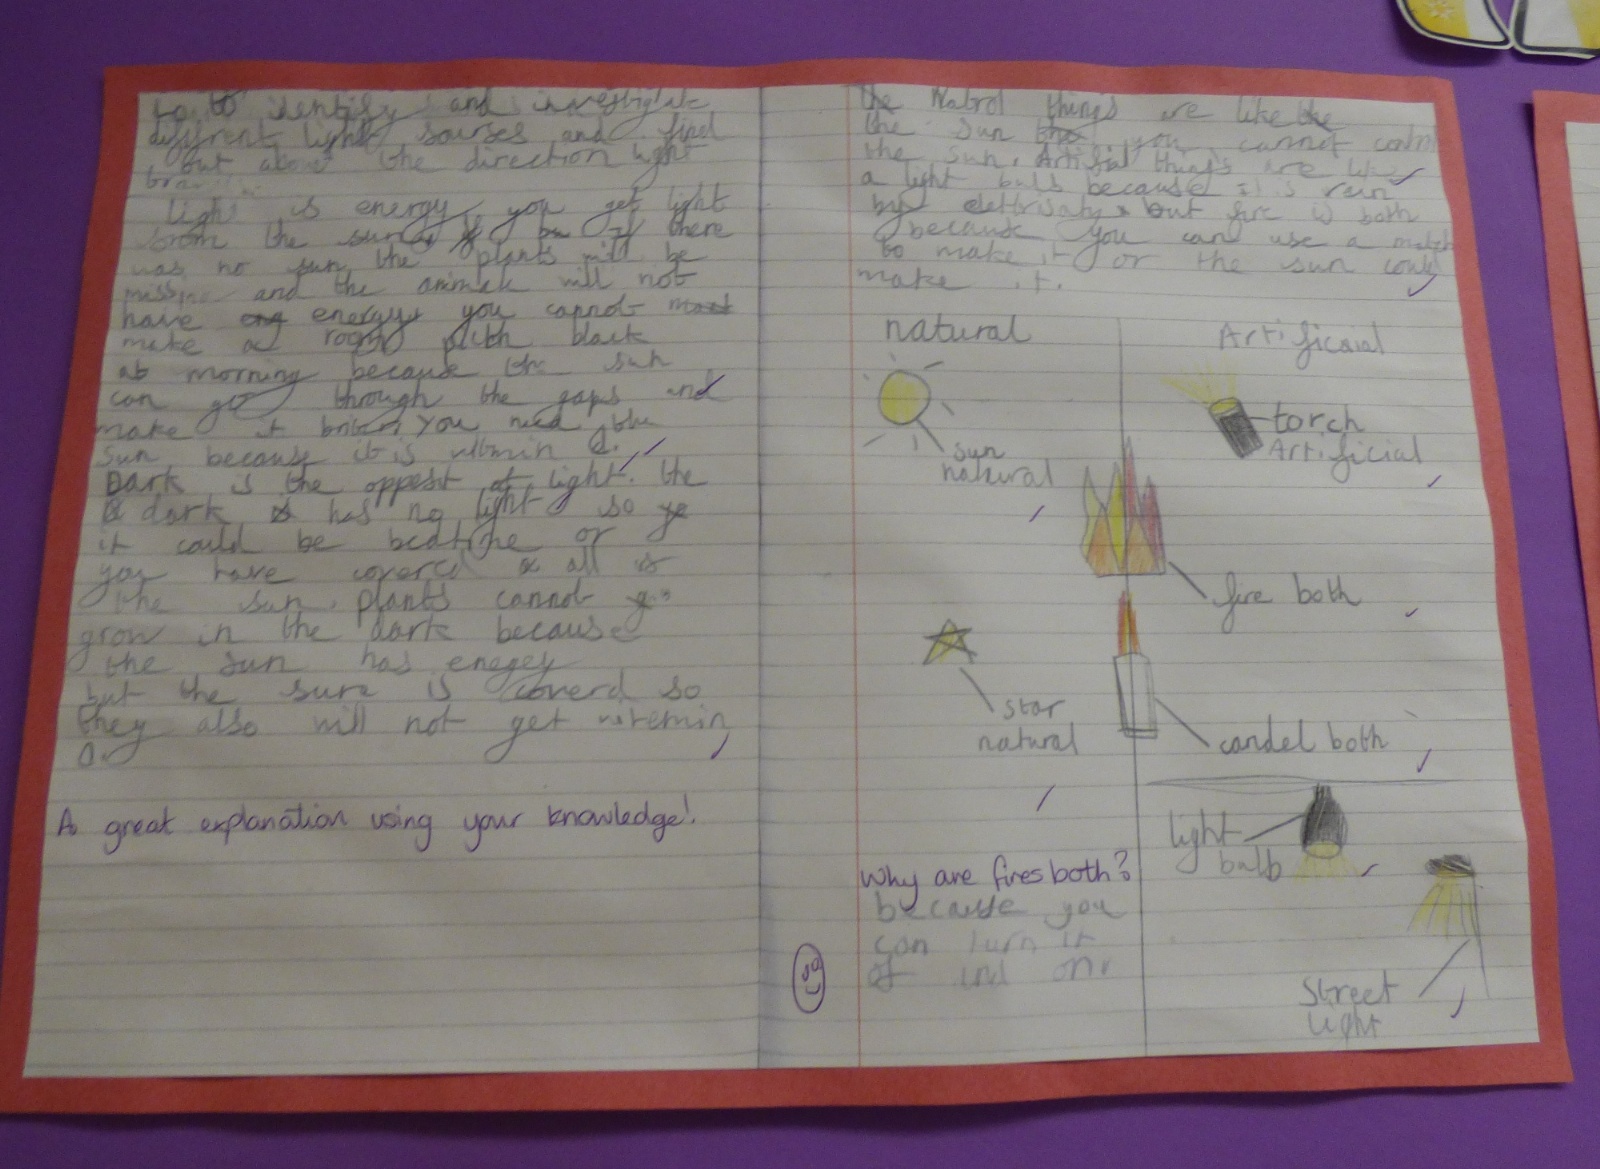 to identify and investigate
diffrent light sourses and find
out about the direction light
Light is energy you get light
from the sun if there
was no sun the plants will be
missing and the animals will not
have eng energy you cannot
make a room pich black
at morning because the sun
can go through the gaps and
make it brite. You need the
sun because it is vitmin d.
Dark is the oppesit of light. the
dark has no light so
it could be bedtime or
you have coverd all
the sun. plants cannot
grow in the dark because
the sun has enegey
but the sun is coverd so
they also will not get vitemin
D.
A great explanation using your knowledge!
the Natrol things are like the
the sun you cannot control
the sun. Artifial things are like
a light bulb because it is run
by elettrisaty. but fire is both
because you can use a match
to make it or the sun could
make it.
natural Artificaial
torch
Artificial
sun
natural
fire both
star
natural
candel both
light
bulb
Why are fires both?
because you
can turn it
of and on.
Street
light